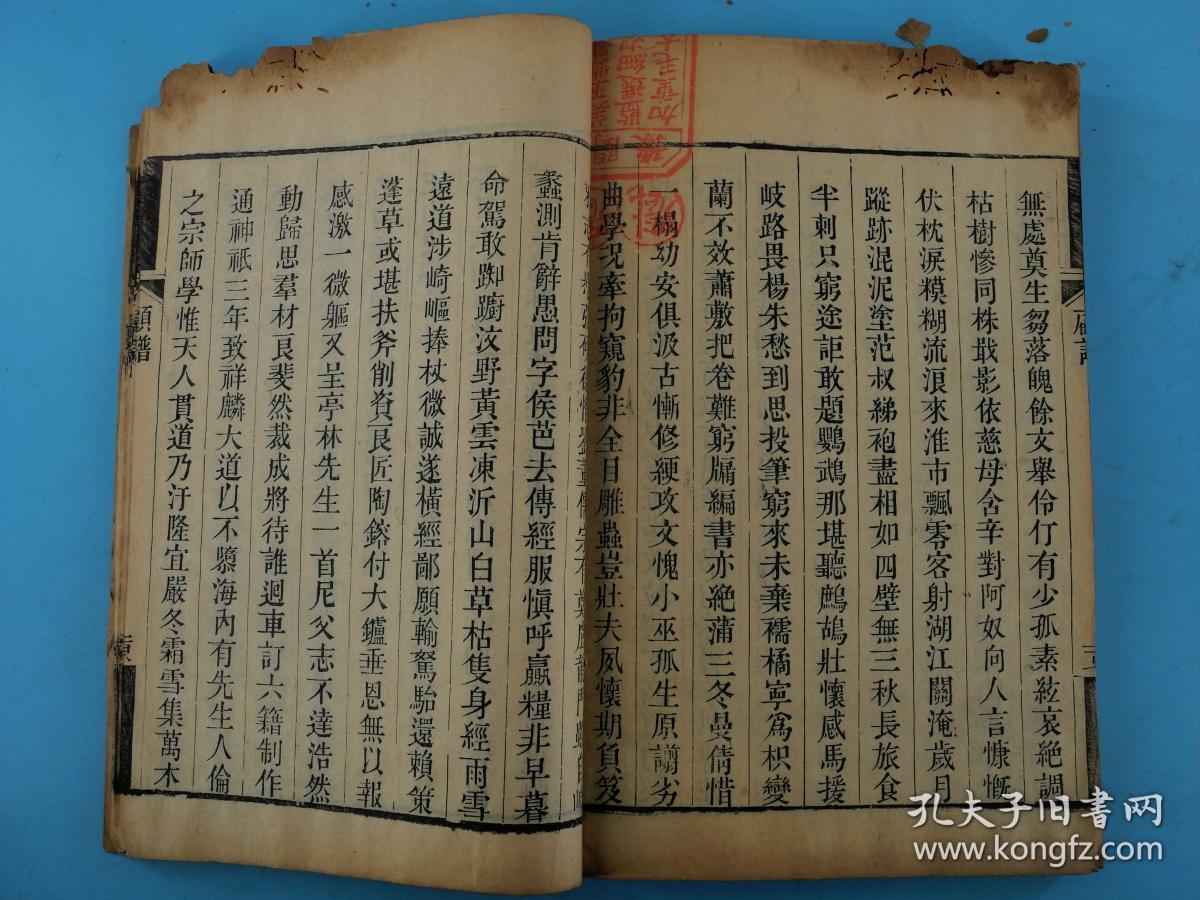 無處奠生芻落魄餘文舉伶仃有少孤素絃哀絕調
枯樹慘同株戢影依慈母含辛對阿奴向人言慷慨
伏枕淚糢糊流浪來淮市飄零客射湖江關淹歲月
蹤跡混泥塗范叔綈袍盡相如四壁無三秋長旅食
半刺只窮途詎敢題鸚鵡那堪聽鷓鴣壯懷感馬援
岐路畏楊朱愁到思投筆窮來未棄襦橘寧為枳變
蘭不效蕭敷把卷難窮牖編書亦絕蒲三冬曼倩惜
一榻幼安俱汲古慚修綆攻文愧小巫孤生原謭劣
曲學況牽拘窺豹非全日雕蟲豈壯夫夙懷期負笈
蠡測肯辭愚問字侯芭去傳經服慎呼贏糧非早暮
命駕敢踟躕汶野黃雲凍沂山白草枯隻身經雨雪
遠道涉崎嶇捧杖微誠遂橫經鄙願輸駑駘還賴策
蓬草或堪扶斧削資良匠陶鎔付大鑪垂恩無以報
感激一微軀又呈亭林先生一首尼父志不達浩然
動歸思羣材良斐然裁成將待誰迴車訂六籍制作
通神祇三年致祥麟大道以不隳海內有先生人倫
之宗師學惟天人貫道乃汙隆宜嚴冬霜雪集萬木
顧譜
孔夫子旧书网
www.kongfz.com